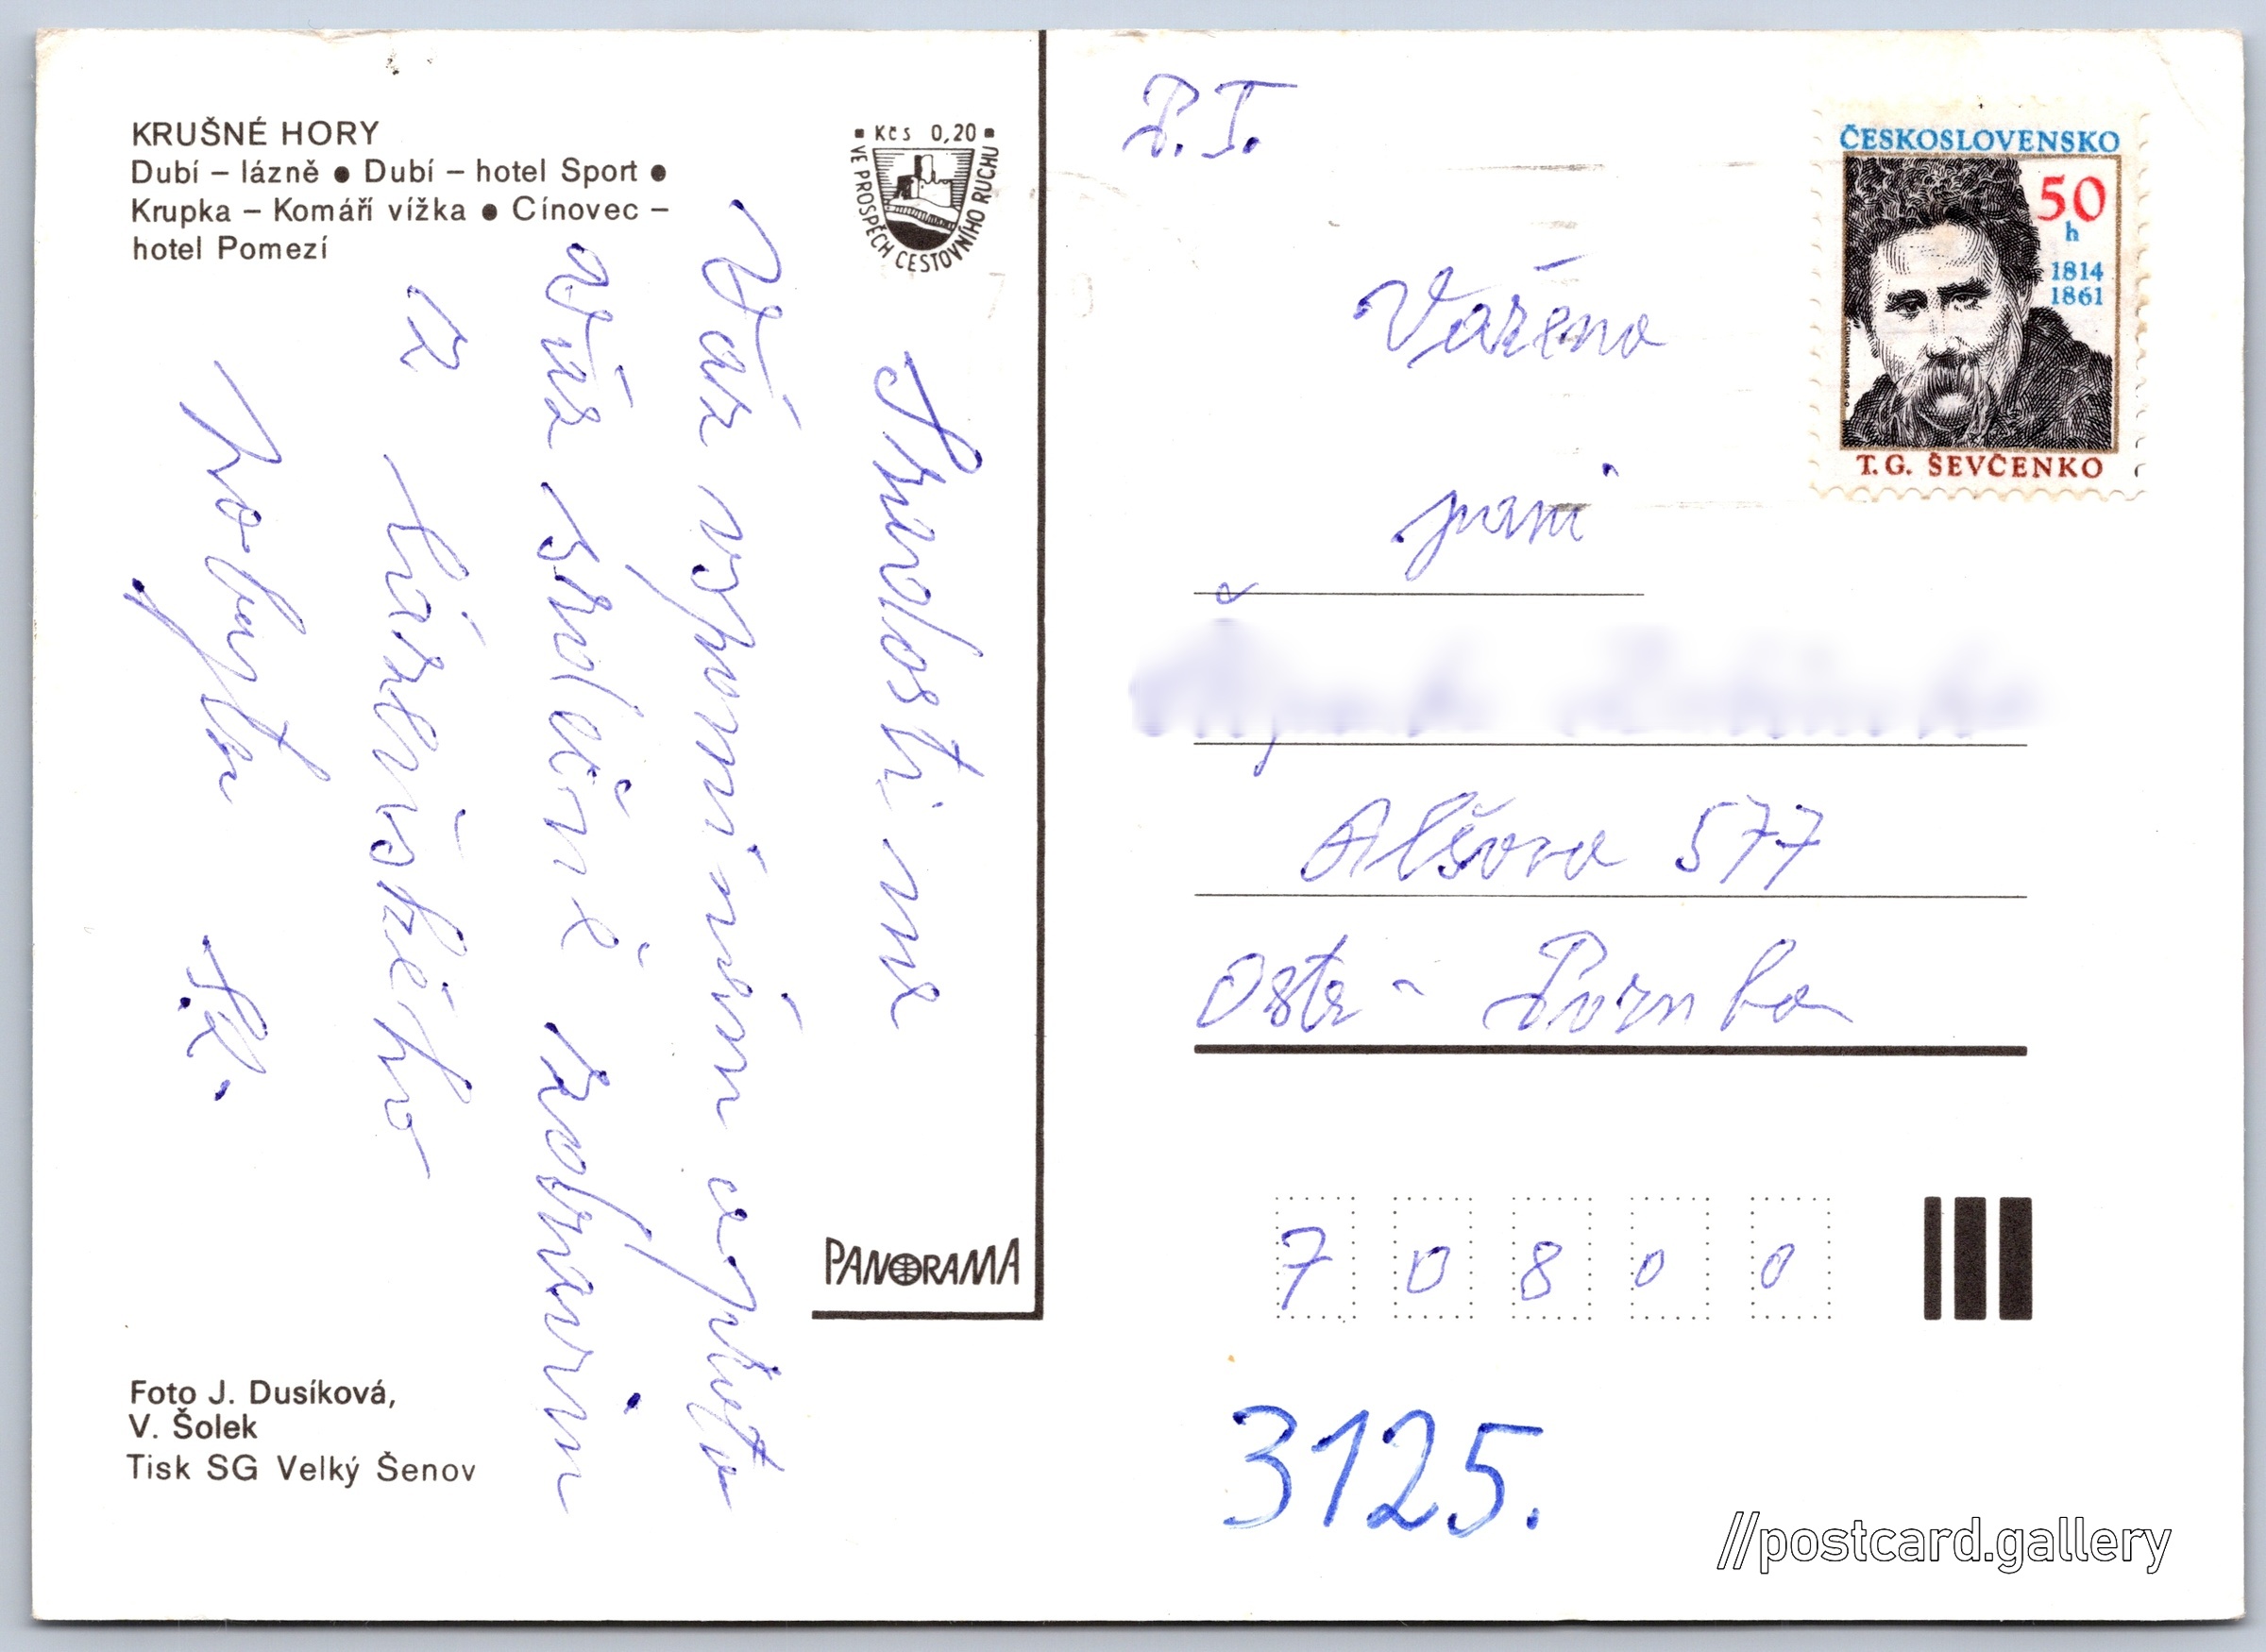 KRUŠNÉ HORY
Dubí – lázně ● Dubí – hotel Sport ●
Krupka – Komáří vížka ● Cínovec –
hotel Pomezí
Kčs 0,20
VE PROSPĚCH CESTOVNÍHO RUCHU
Vás vzpomínám a proto
srdečně zdravím
z Lázeňského
pobytu
PANORAMA
Foto J. Dusíková,
V. Šolek
Tisk SG Velký Šenov
P.T.
Vážená
paní
Alšova 577
Ostr - Poruba
7 0 8 0 0
3125.
ČESKOSLOVENSKO
50
h
1814
1861
T. G. ŠEVČENKO
//postcard.gallery